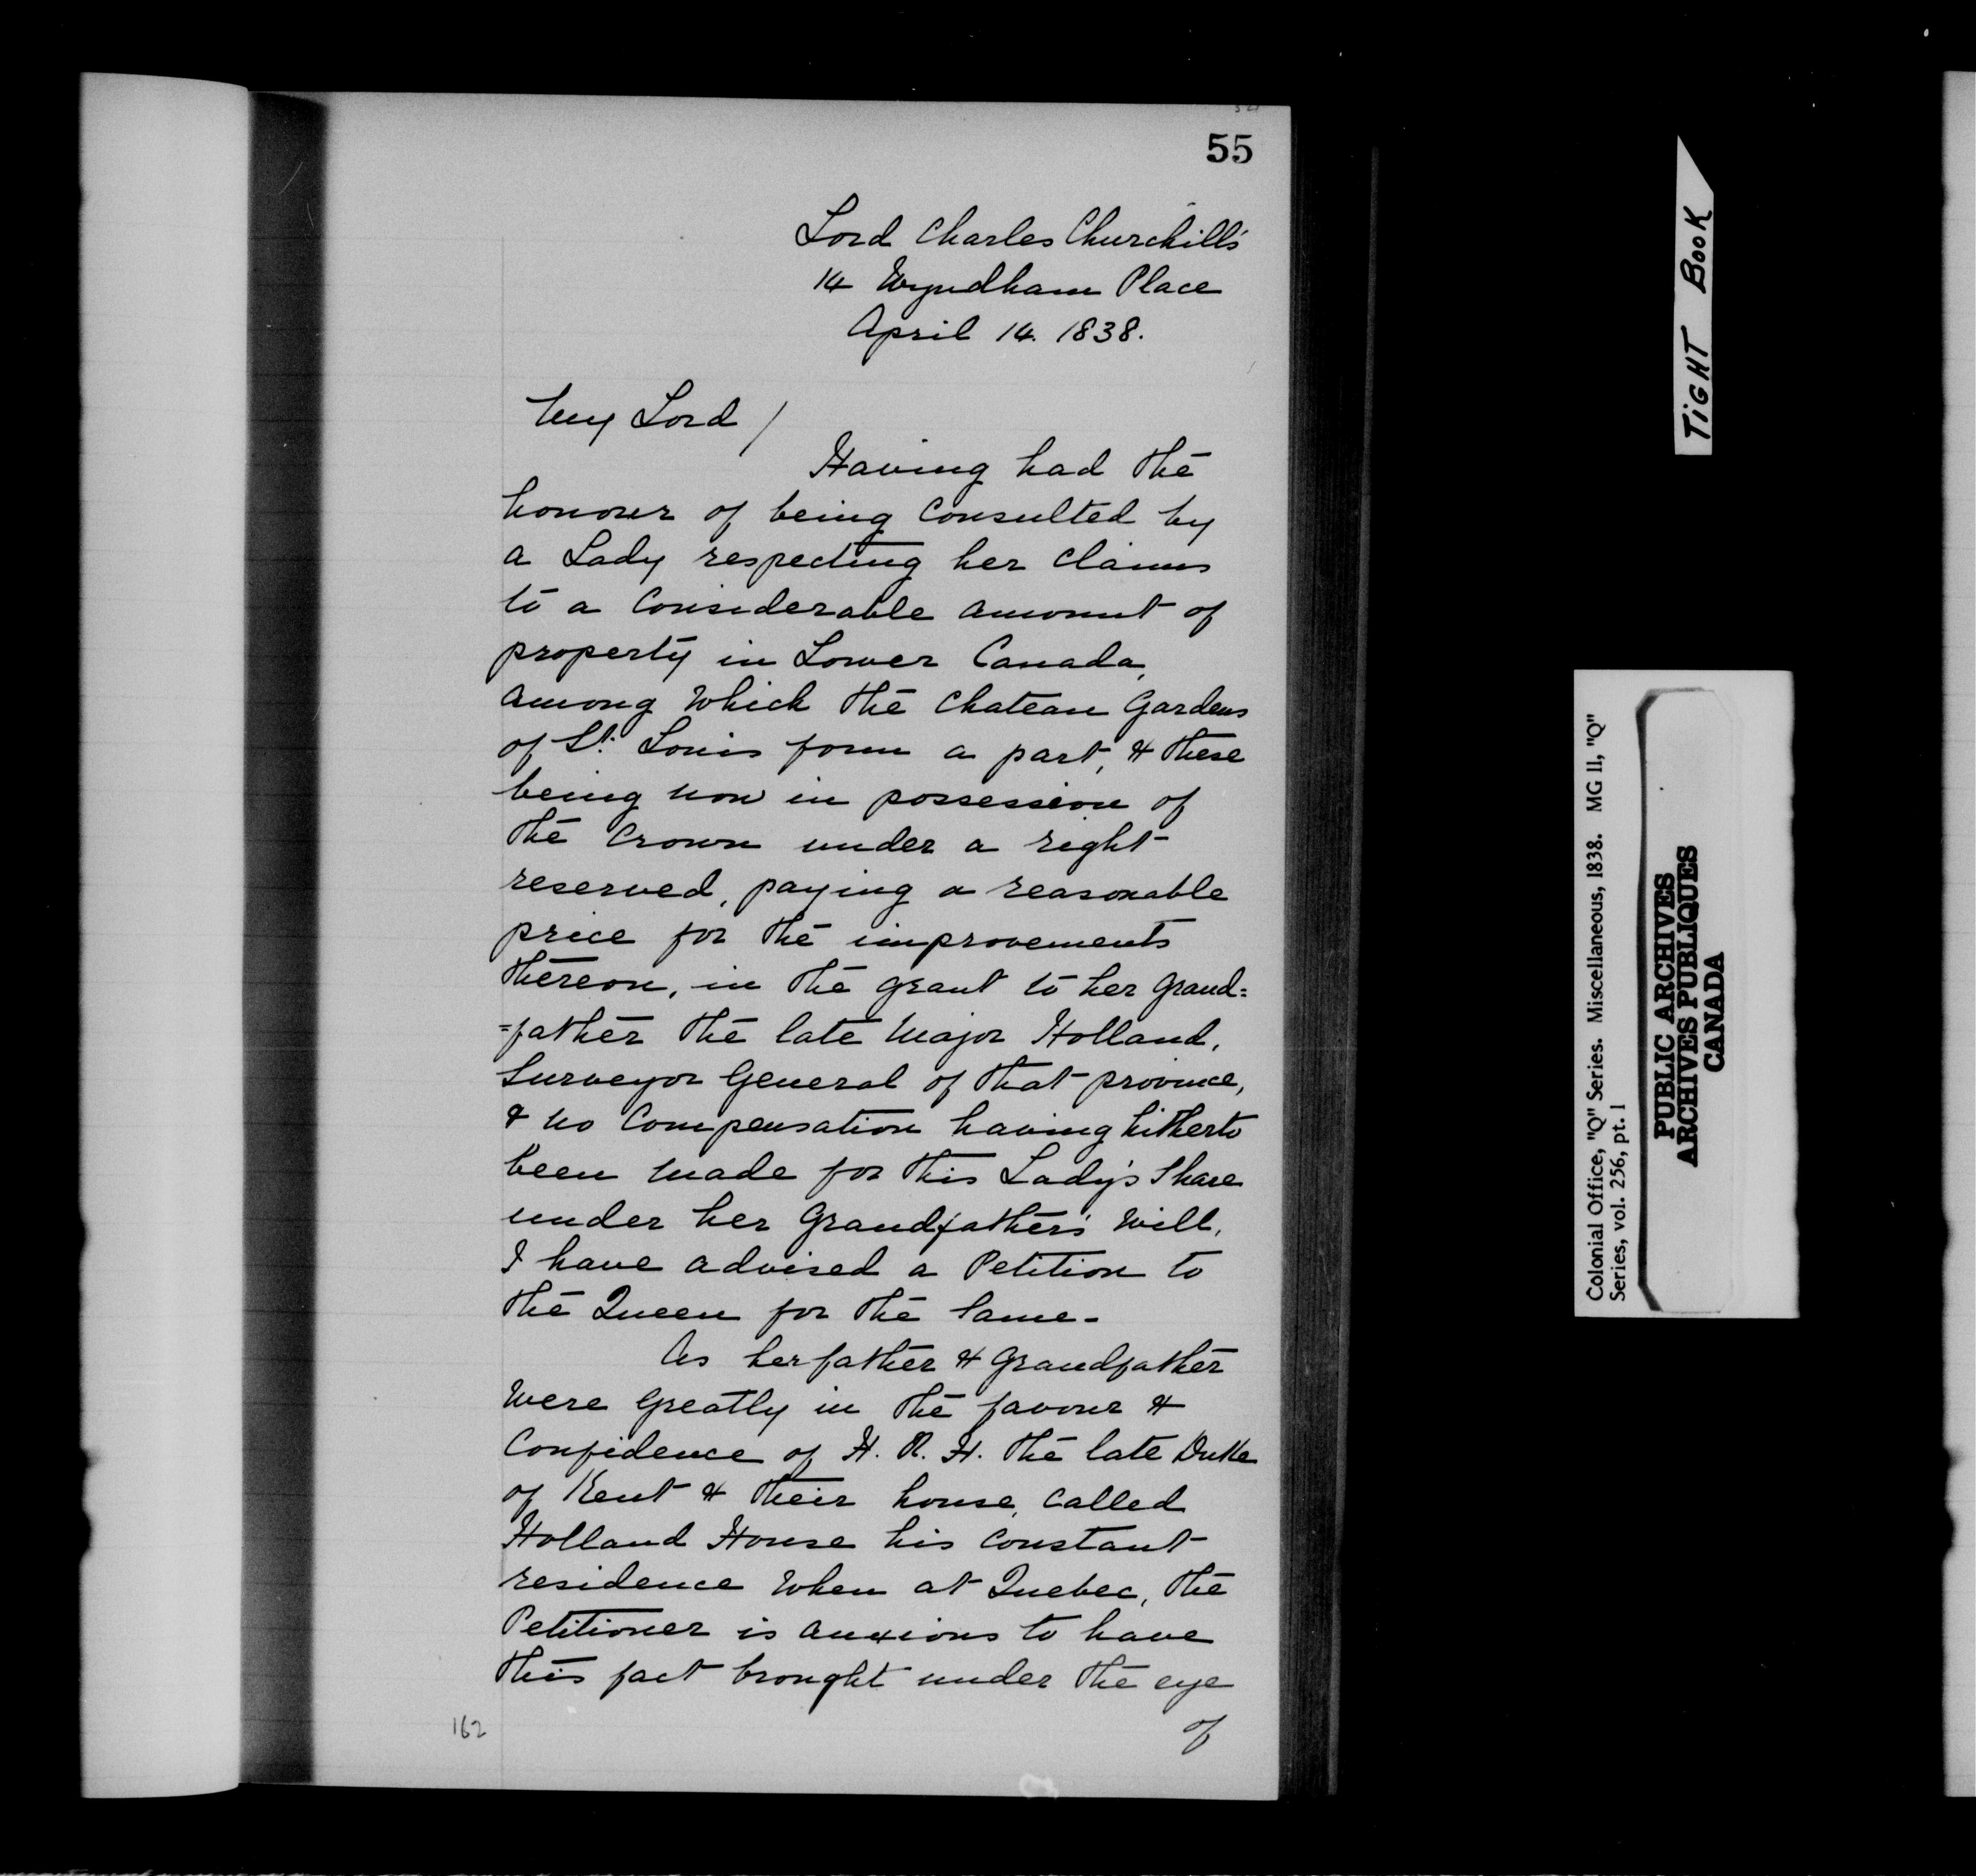 55
Lord Charles Churchill's
14 Wyndham Place
April 14. 1838.
My Lord /
Having had the
honour of being Consulted by
a Lady respecting her Claims
to a Considerable amount of
property in Lower Canada,
among which the Chateau Gardens
of St. Louis form a part, & these
being now in possession of
the Crown under a right
reserved, paying a reasonable
price for the improvements
thereon, in the grant to her Grand=
=father the late Major Holland,
Surveyor General of that province,
& no Compensation having hitherto
been made for this Lady's Share
under her Grandfather's Will,
I have advised a Petition to
the Queen for the Same -
As her father & Grandfather
Were Greatly in the favour &
Confidence of H. R. H. the late Duke
of Kent & their house, Called
Holland House his Constant
residence When at Quebec, the
Petitioner is anxious to have
this fact brought under the eye
of
162
TIGHT BOOK
Colonial Office, "Q" Series. Miscellaneous, 1838. MG 11, "Q"
Series, vol. 256, pt. 1
PUBLIC ARCHIVES
ARCHIVES PUBLIQUES
CANADA